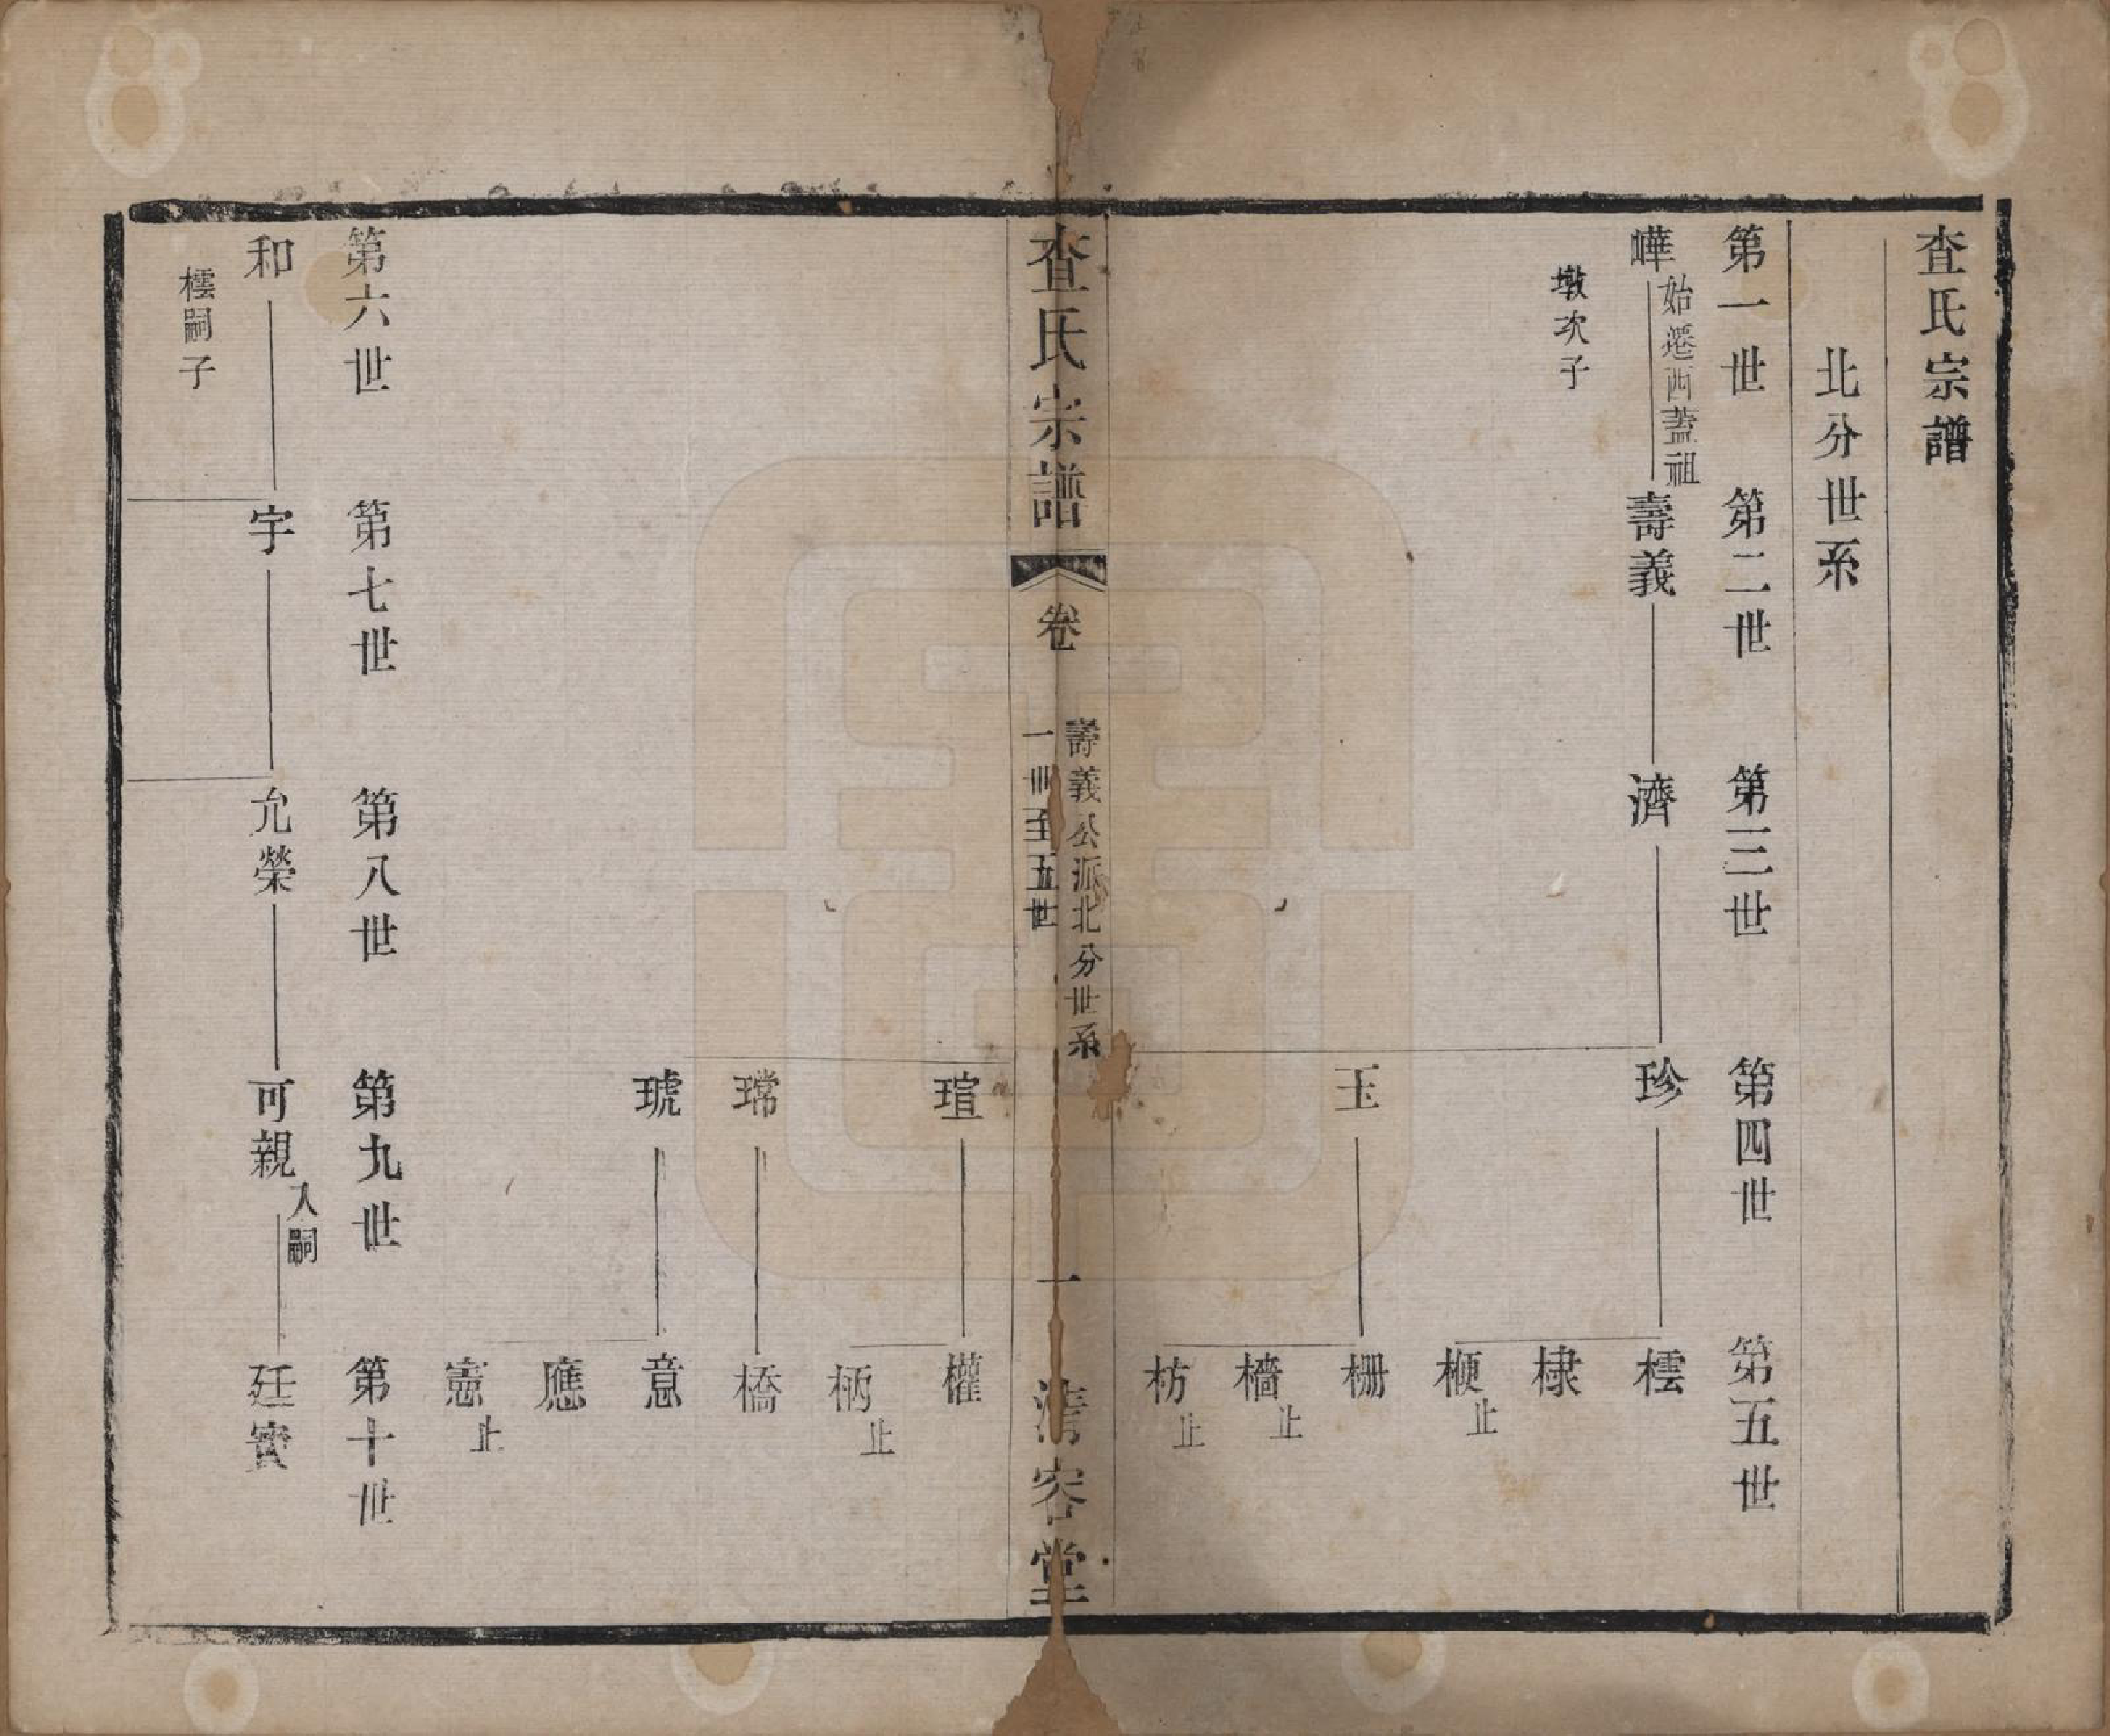 查氏宗譜
北分世系
第一世 第二世 第三世 第四世 第五世
嶂 始遷西蓋祖 壽義 濟 珍 橒
墩次子
棣
楩 止
玉 栅
檣 止
枋 止
查氏宗譜 卷 壽義公派北分世系 一世至五世 一 清容堂
瑄 權
柄 止
瑺 橋
琥 意
應
憲 止
第六世 第七世 第八世 第九世 第十世
和 宇 允榮 可親 入嗣 廷實
橒嗣子